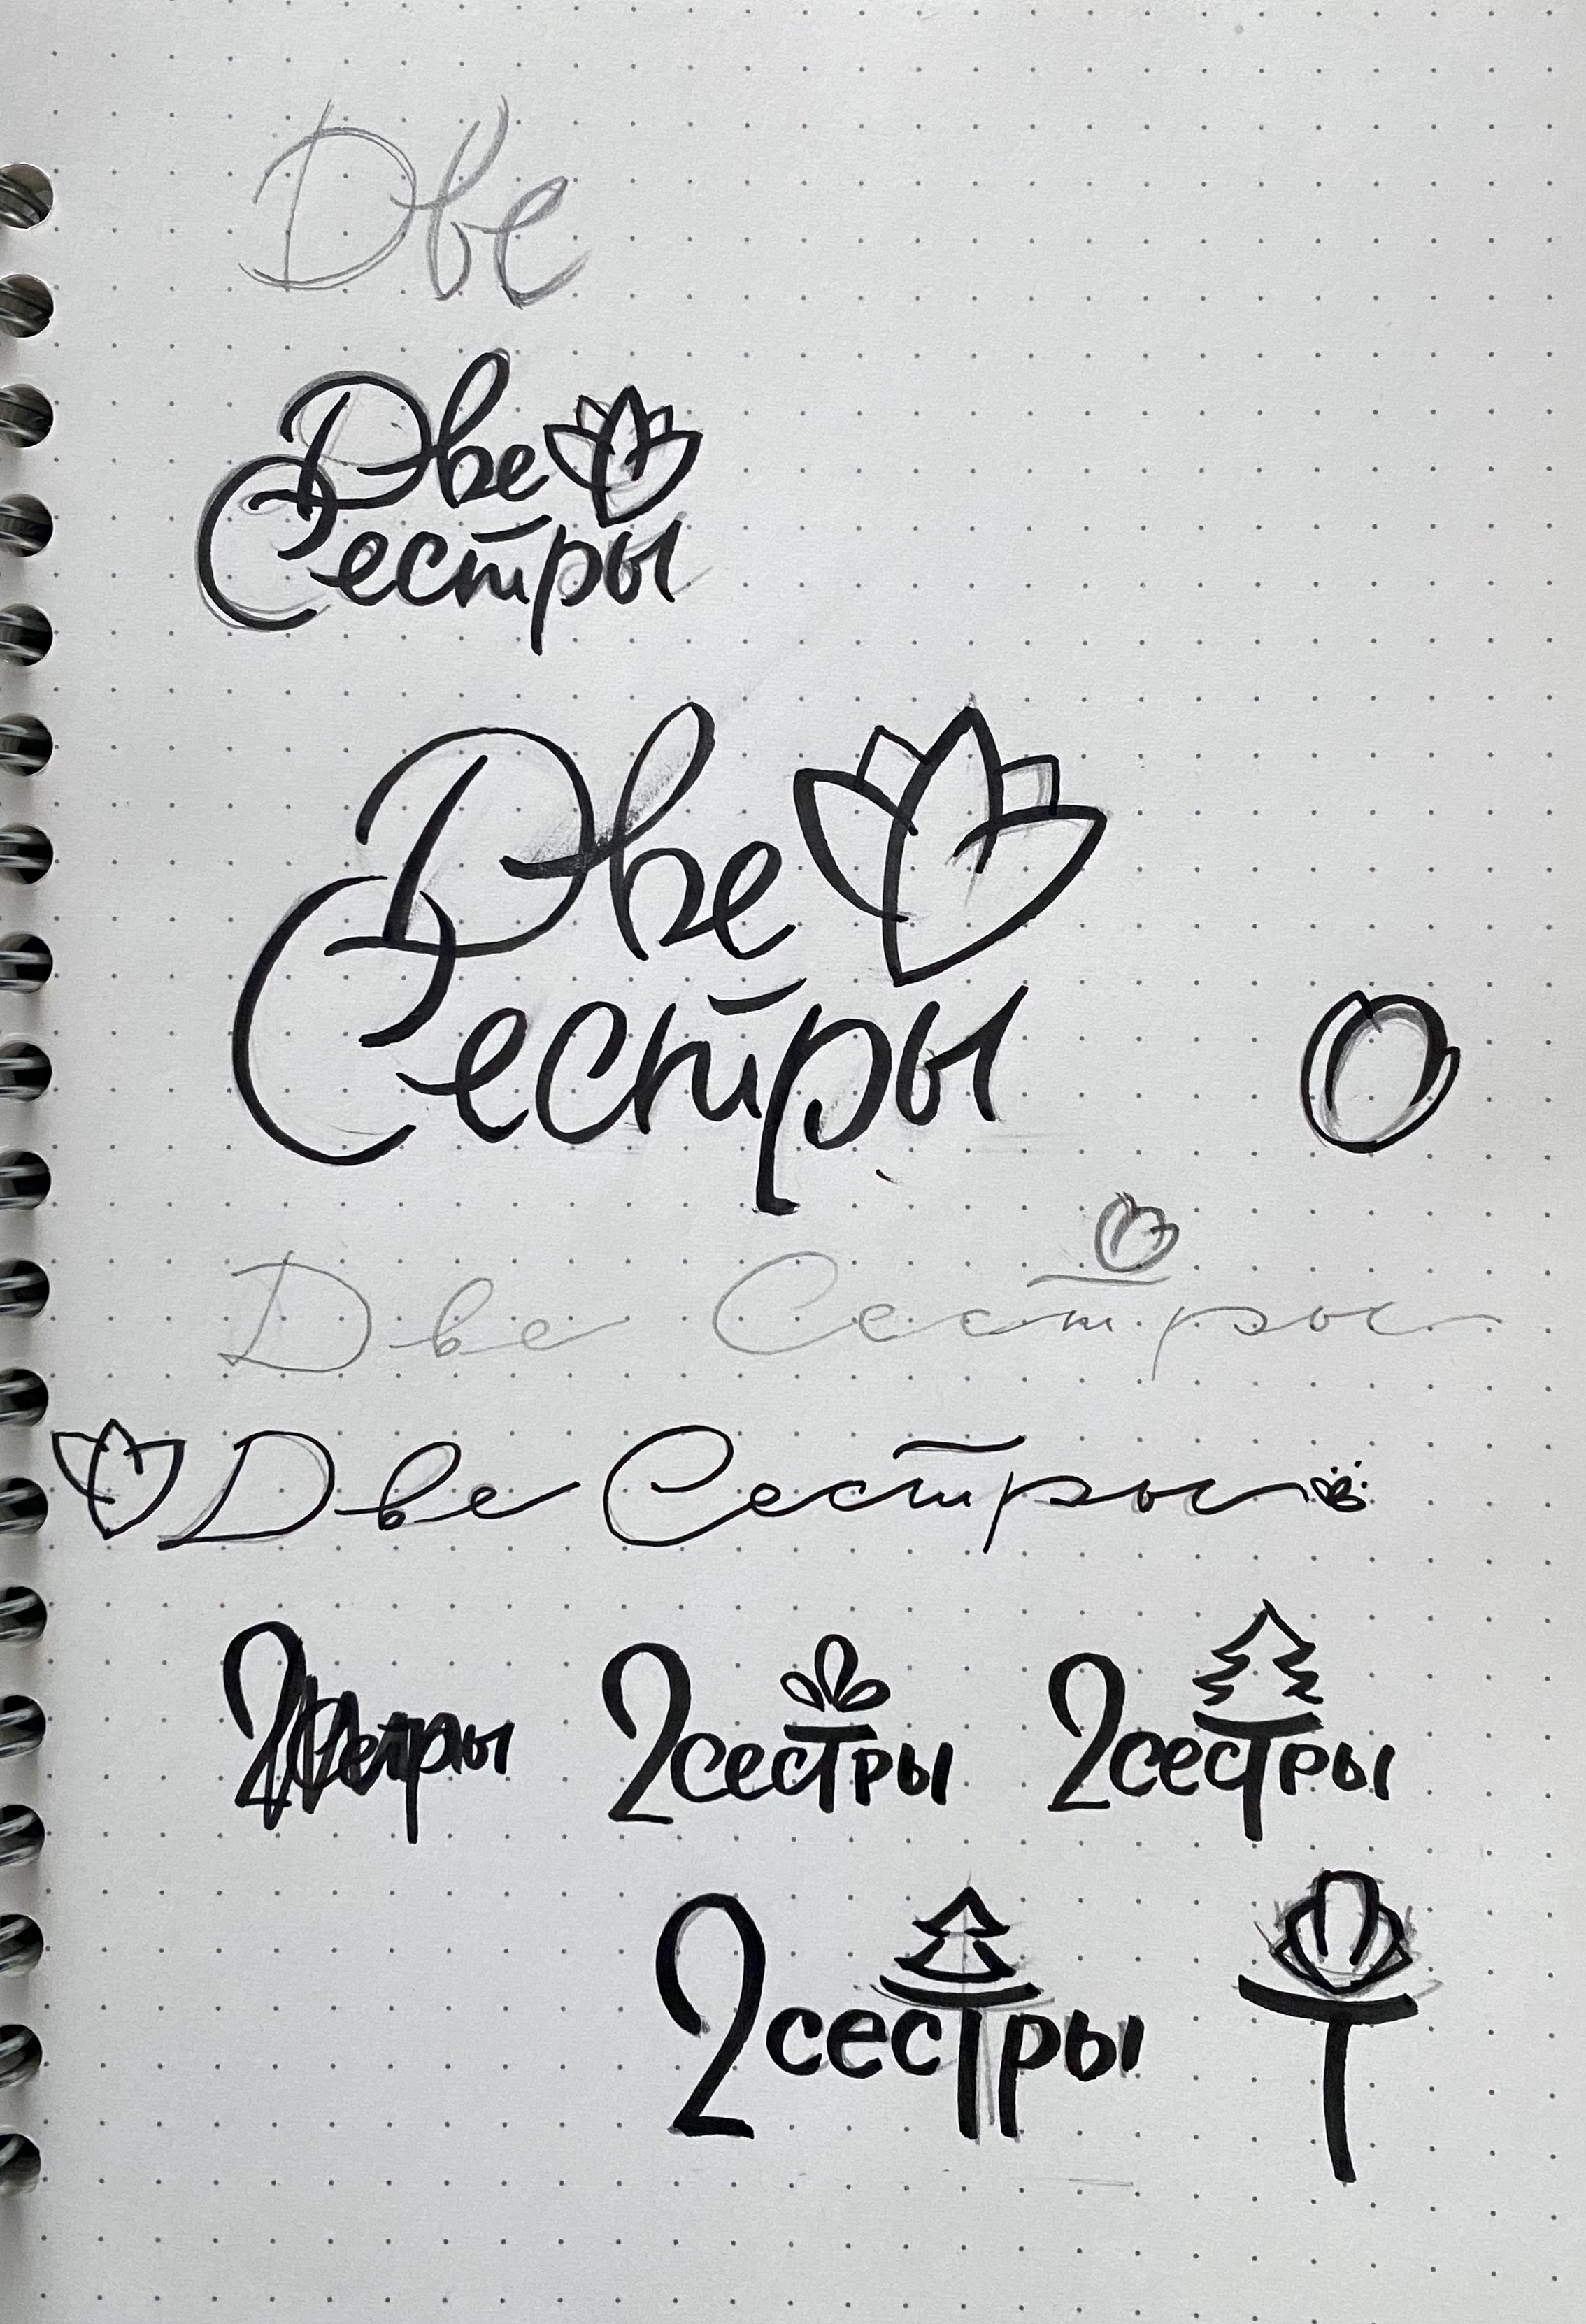 Две
Две
Сестры
Две
Сестры
Две Сестры
Две Сестры
2 сестры 2 сестры
2 сестры Т